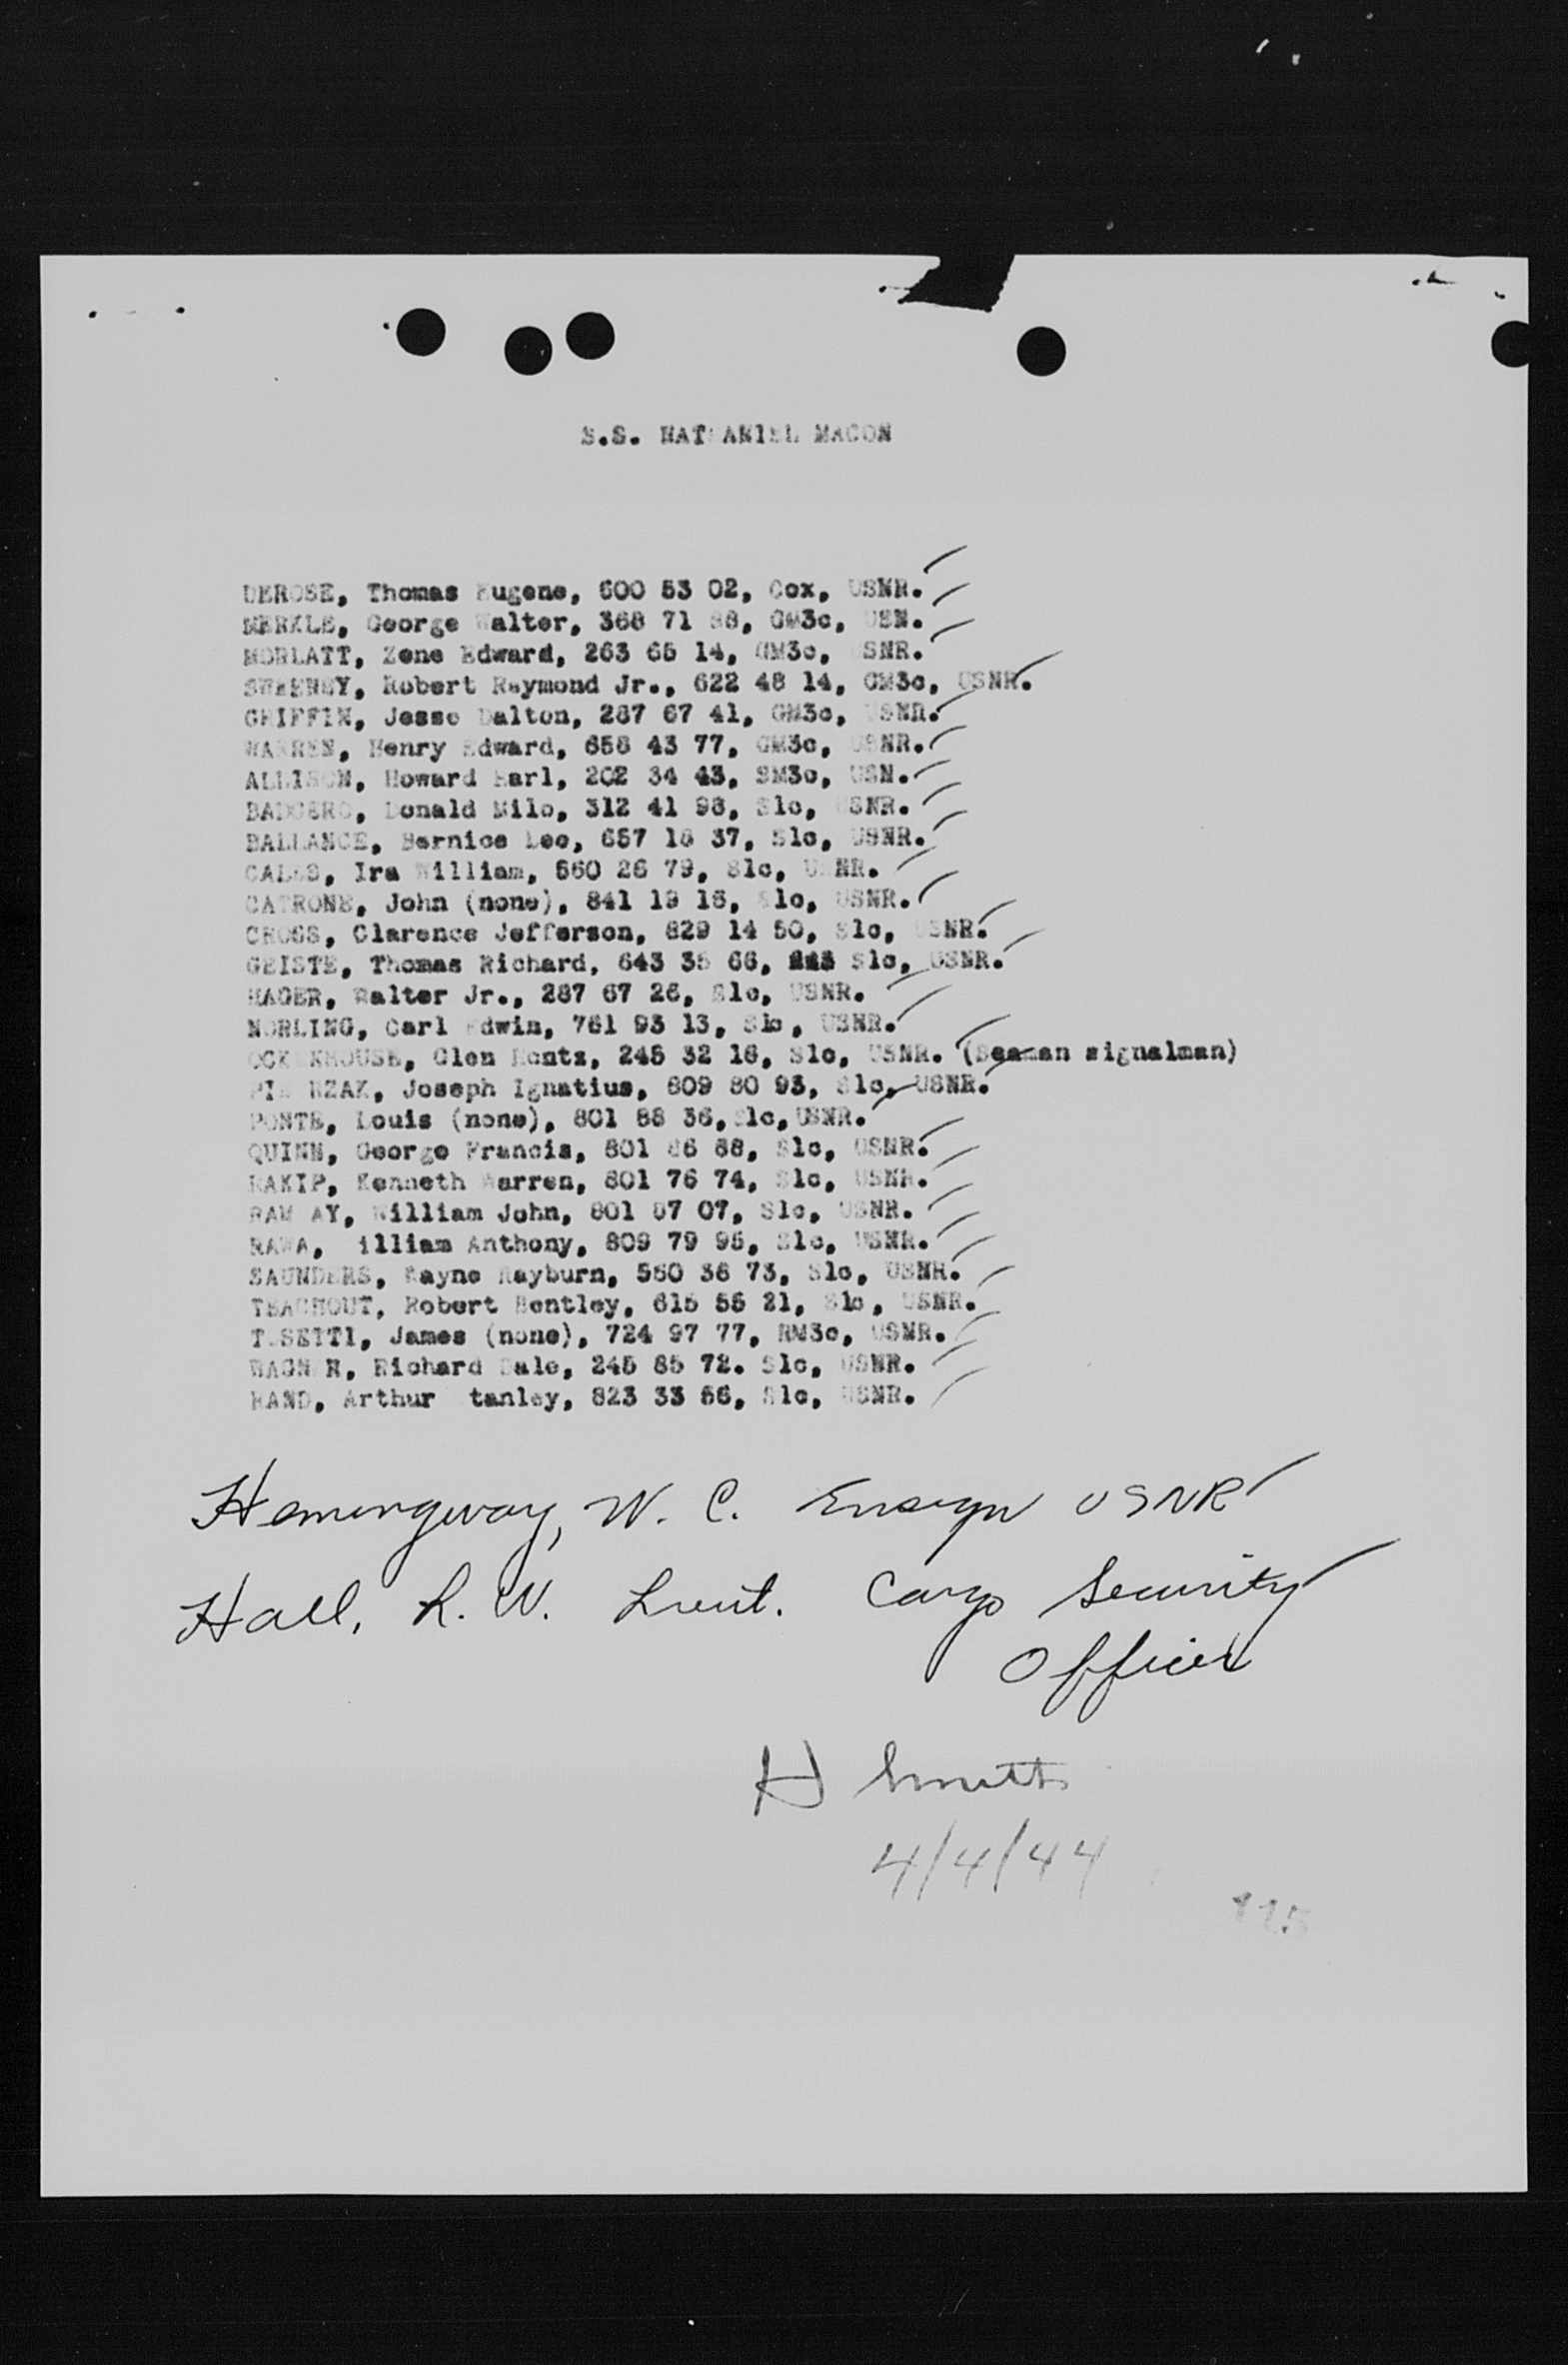 S.S. NATHANIEL MACON
DEROSE, Thomas Eugene, 600 53 02, Cox, USNR.
MERKLE, George Walter, 368 71 88, GM3c, USN.
MORLATT, Zene Edward, 263 65 14, GM3c, USNR.
SWEENEY, Robert Raymond Jr., 622 48 14, GM3c, USNR.
GRIFFIN, Jesse Dalton, 287 67 41, GM3c, USNR.
WARREN, Henry Edward, 658 43 77, GM3c, USNR.
ALLISON, Howard Earl, 202 34 43, SM3c, USN.
Donald Milo, 312 41 98, S1c, USNR.
BALLANCE, Bernice Lee, 657 18 37, S1c, USNR.
Ira William, 560 26 79, S1c, USNR.
CATRONE, John (none), 841 19 16, S1c, USNR.
CROSS, Clarence Jefferson, 829 14 50, S1c, USNR.
GEISTE, Thomas Richard, 643 35 66, S1c, USNR.
HAGER, Walter Jr., 287 67 26, S1c, USNR.
NORLING, Carl Edwin, 761 93 13, S1c, USNR.
Glen 245 32 16, S1c, USNR. (Seaman signalman)
Joseph Ignatius, 809 80 93, S1c, USNR.
PONTE, Louis (none), 801 88 36, S1c, USNR.
QUINN, George Francis, 801 86 88, S1c, USNR.
RAKIP, Kenneth Warren, 801 76 74, S1c, USNR.
RAMSAY, William John, 801 87 07, S1c, USNR.
RAWA, William Anthony, 809 79 95, S1c, USNR.
SAUNDERS, Wayne Rayburn, 560 36 73, S1c, USNR.
TEACHOUT, Robert Bentley, 615 55 21, S1c, USNR.
James (none), 724 97 77, RM3c, USNR.
WAGNER, Richard Dale, 245 85 72. S1c, USNR.
RAND, Arthur Stanley, 823 33 56, S1c, USNR.
Hemingway, W. C. Ensign USNR
Hall, R. W. Lieut. Cargo Security
Officer
H Smith
4/4/44
115